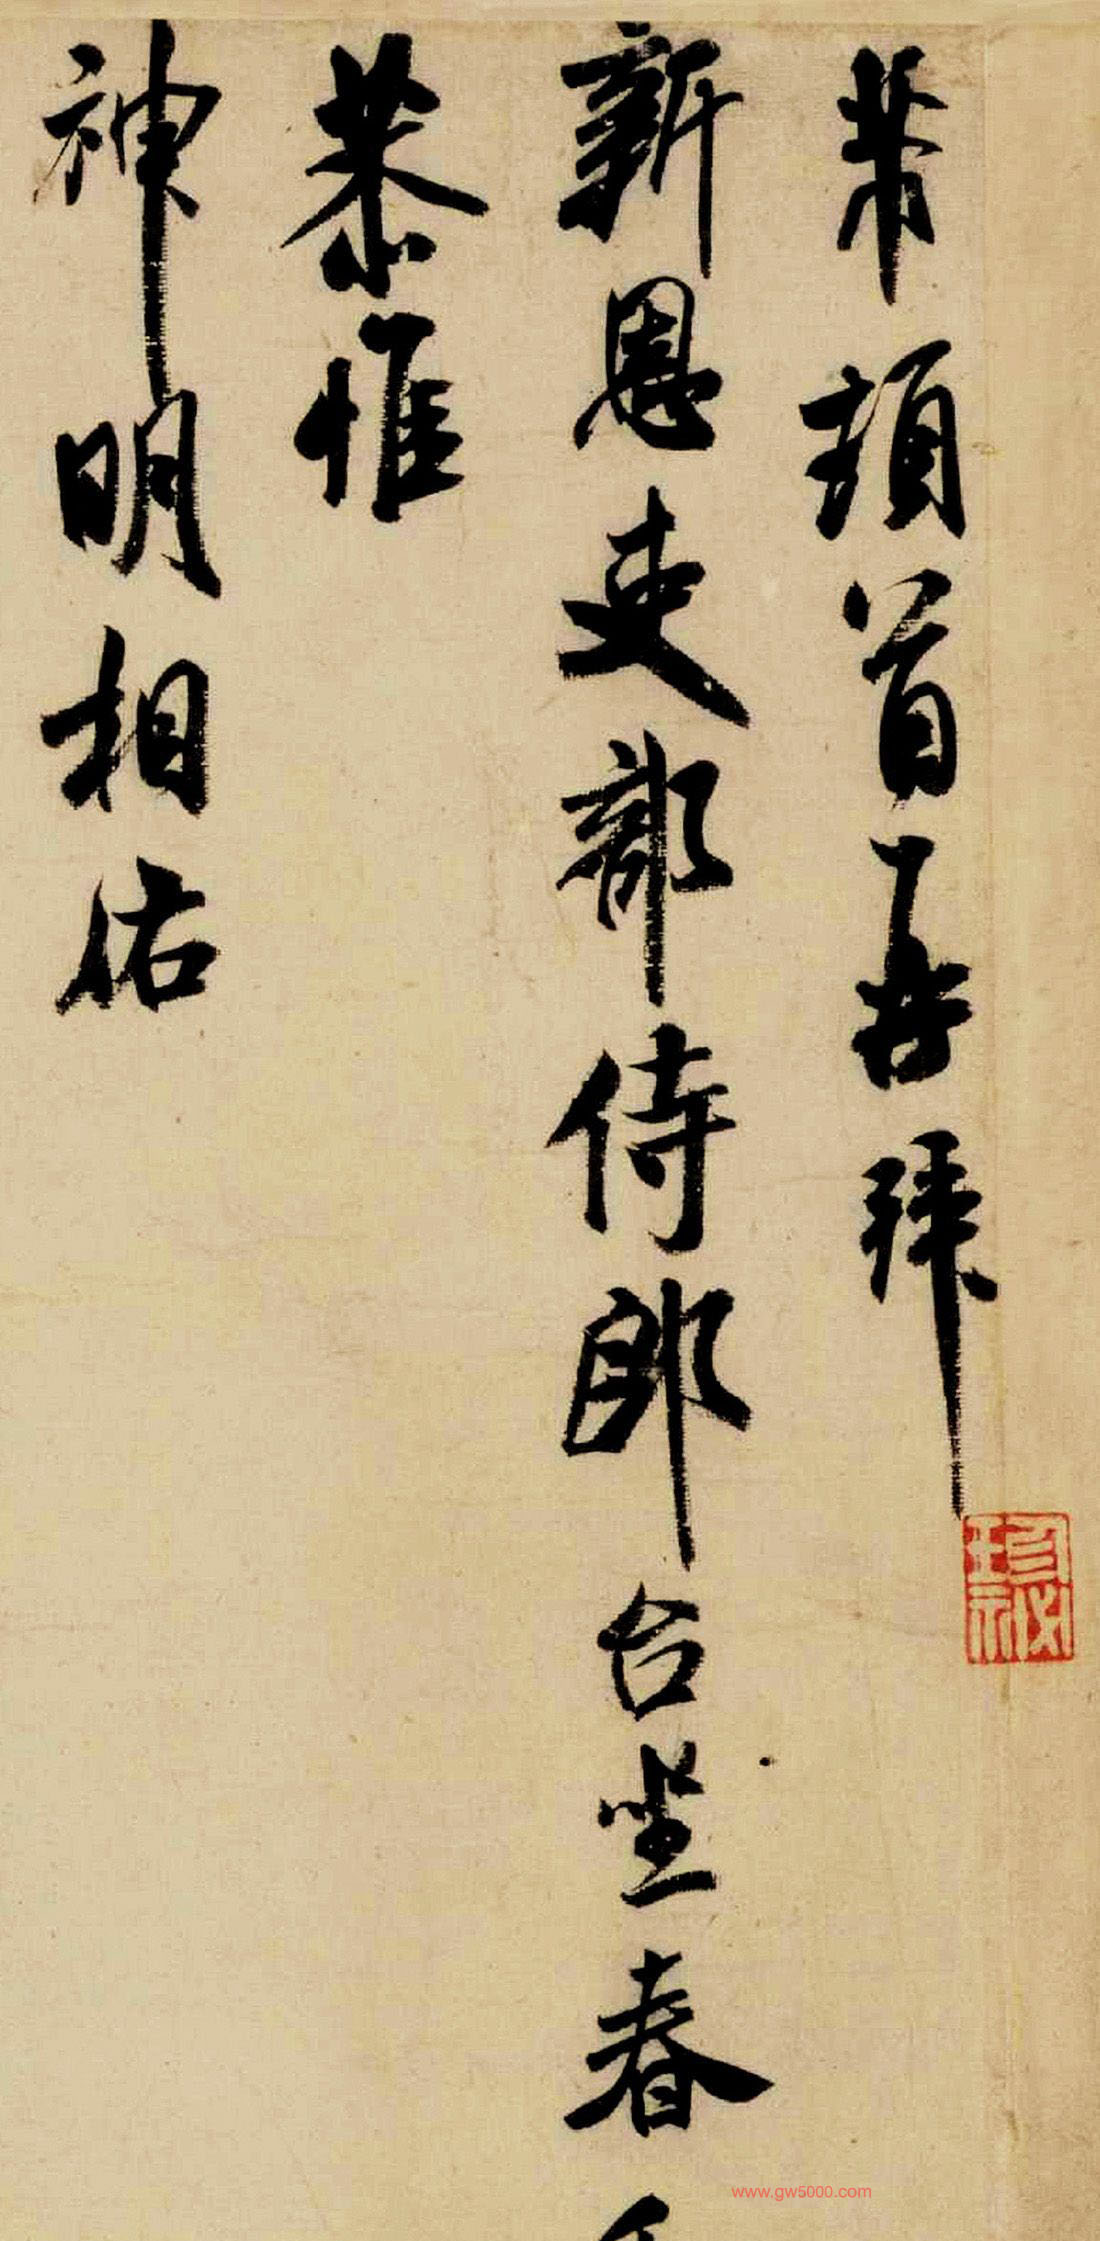 芾頓首再拜
新恩吏部侍郎台坐春
恭惟
神明相佑
珍祕
www.gw5000.com